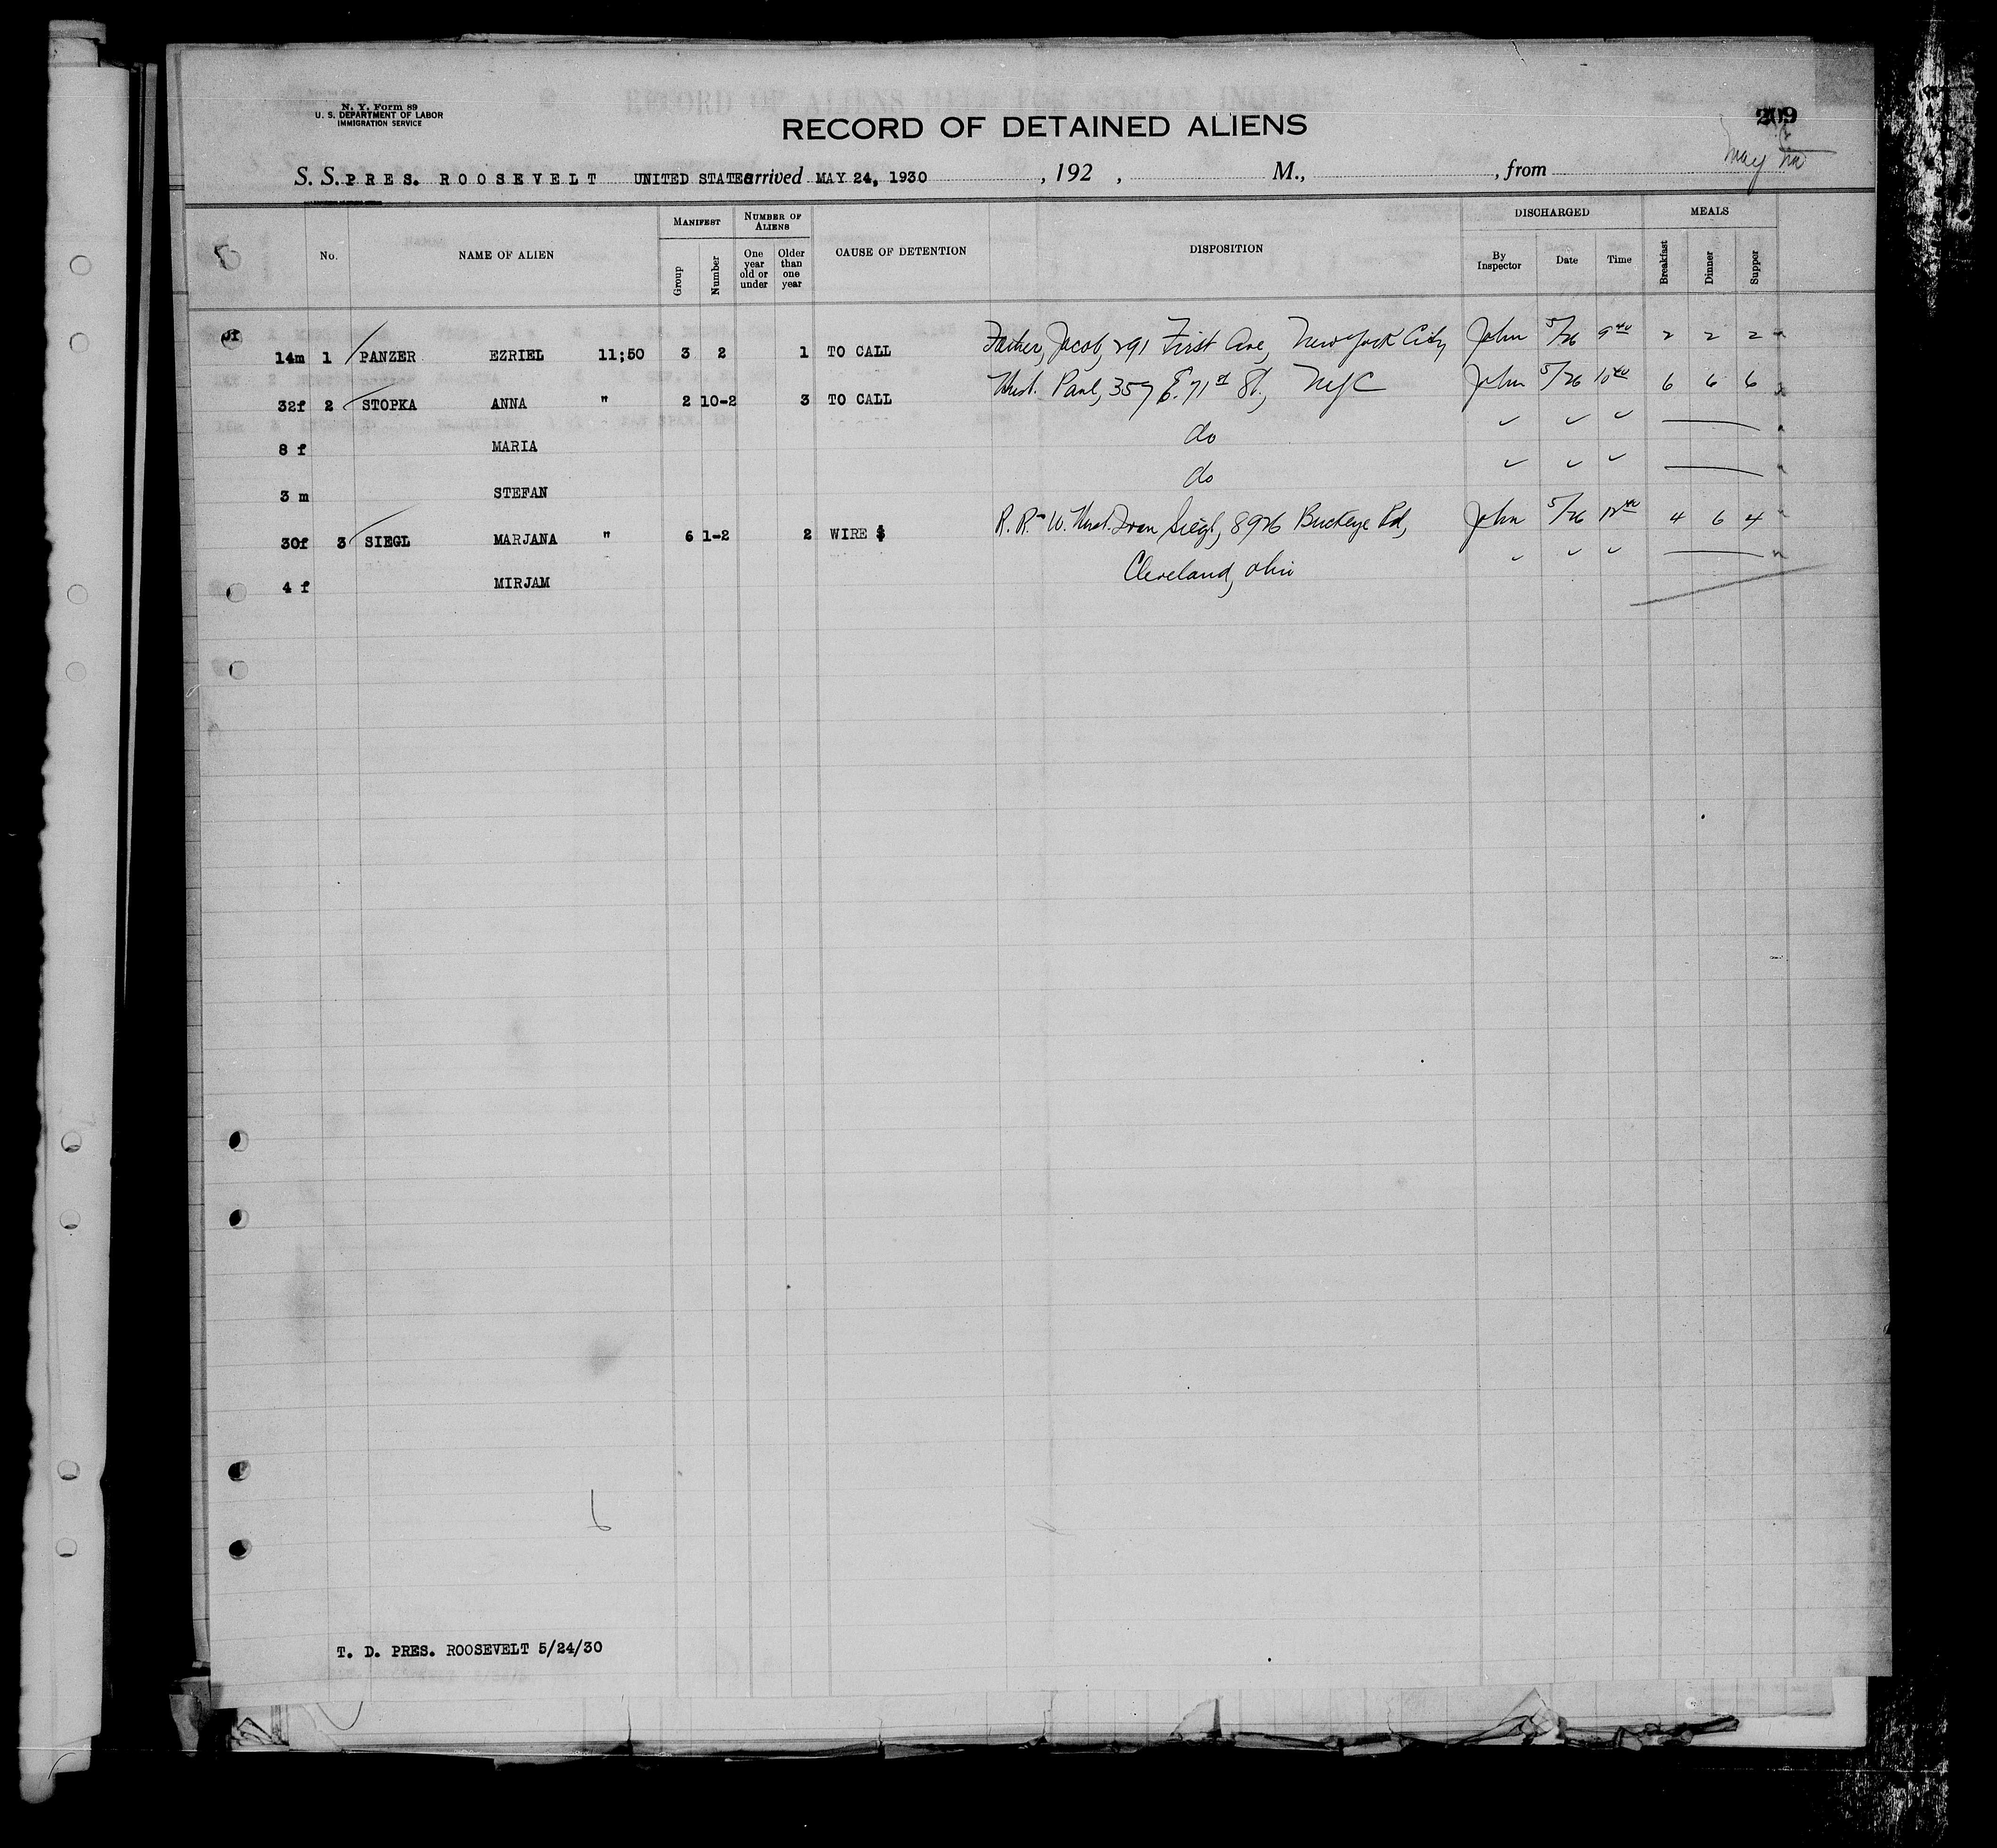 N. Y. Form 89
U. S. DEPARTMENT OF LABOR
IMMIGRATION SERVICE
RECORD OF DETAINED ALIENS
209
S. S. PRES. ROOSEVELT UNITED STATES arrived MAY 24, 1930 , 192 , M., , from
May
No. NAME OF ALIEN MANIFEST Group Number NUMBER OF ALIENS One year old or under Older than one year CAUSE OF DETENTION DISPOSITION DISCHARGED By Inspector Date Time MEALS Breakfast Dinner Supper
14m 1 PANZER EZRIEL 11;50 3 2 1 TO CALL Father, Jacob, 291 First Ave, New York City John 5/26 9 40 2 2 2
32f 2 STOPKA ANNA " 2 10-2 3 TO CALL Husb. Paul, 357 E. 71st St., NYC John 5/26 10 40 6 6 6
8 f MARIA do ✓ ✓ ✓
3 m STEFAN do ✓ ✓ ✓
30f 3 SIEGL MARJANA " 6 1-2 2 WIRE $ R. R. W. Husb. Ivan Siegl, 8926 Buckeye Rd, John 5/26 4 6 4
4 f MIRJAM Cleveland, Ohio ✓ ✓ ✓
6
T. D. PRES. ROOSEVELT 5/24/30